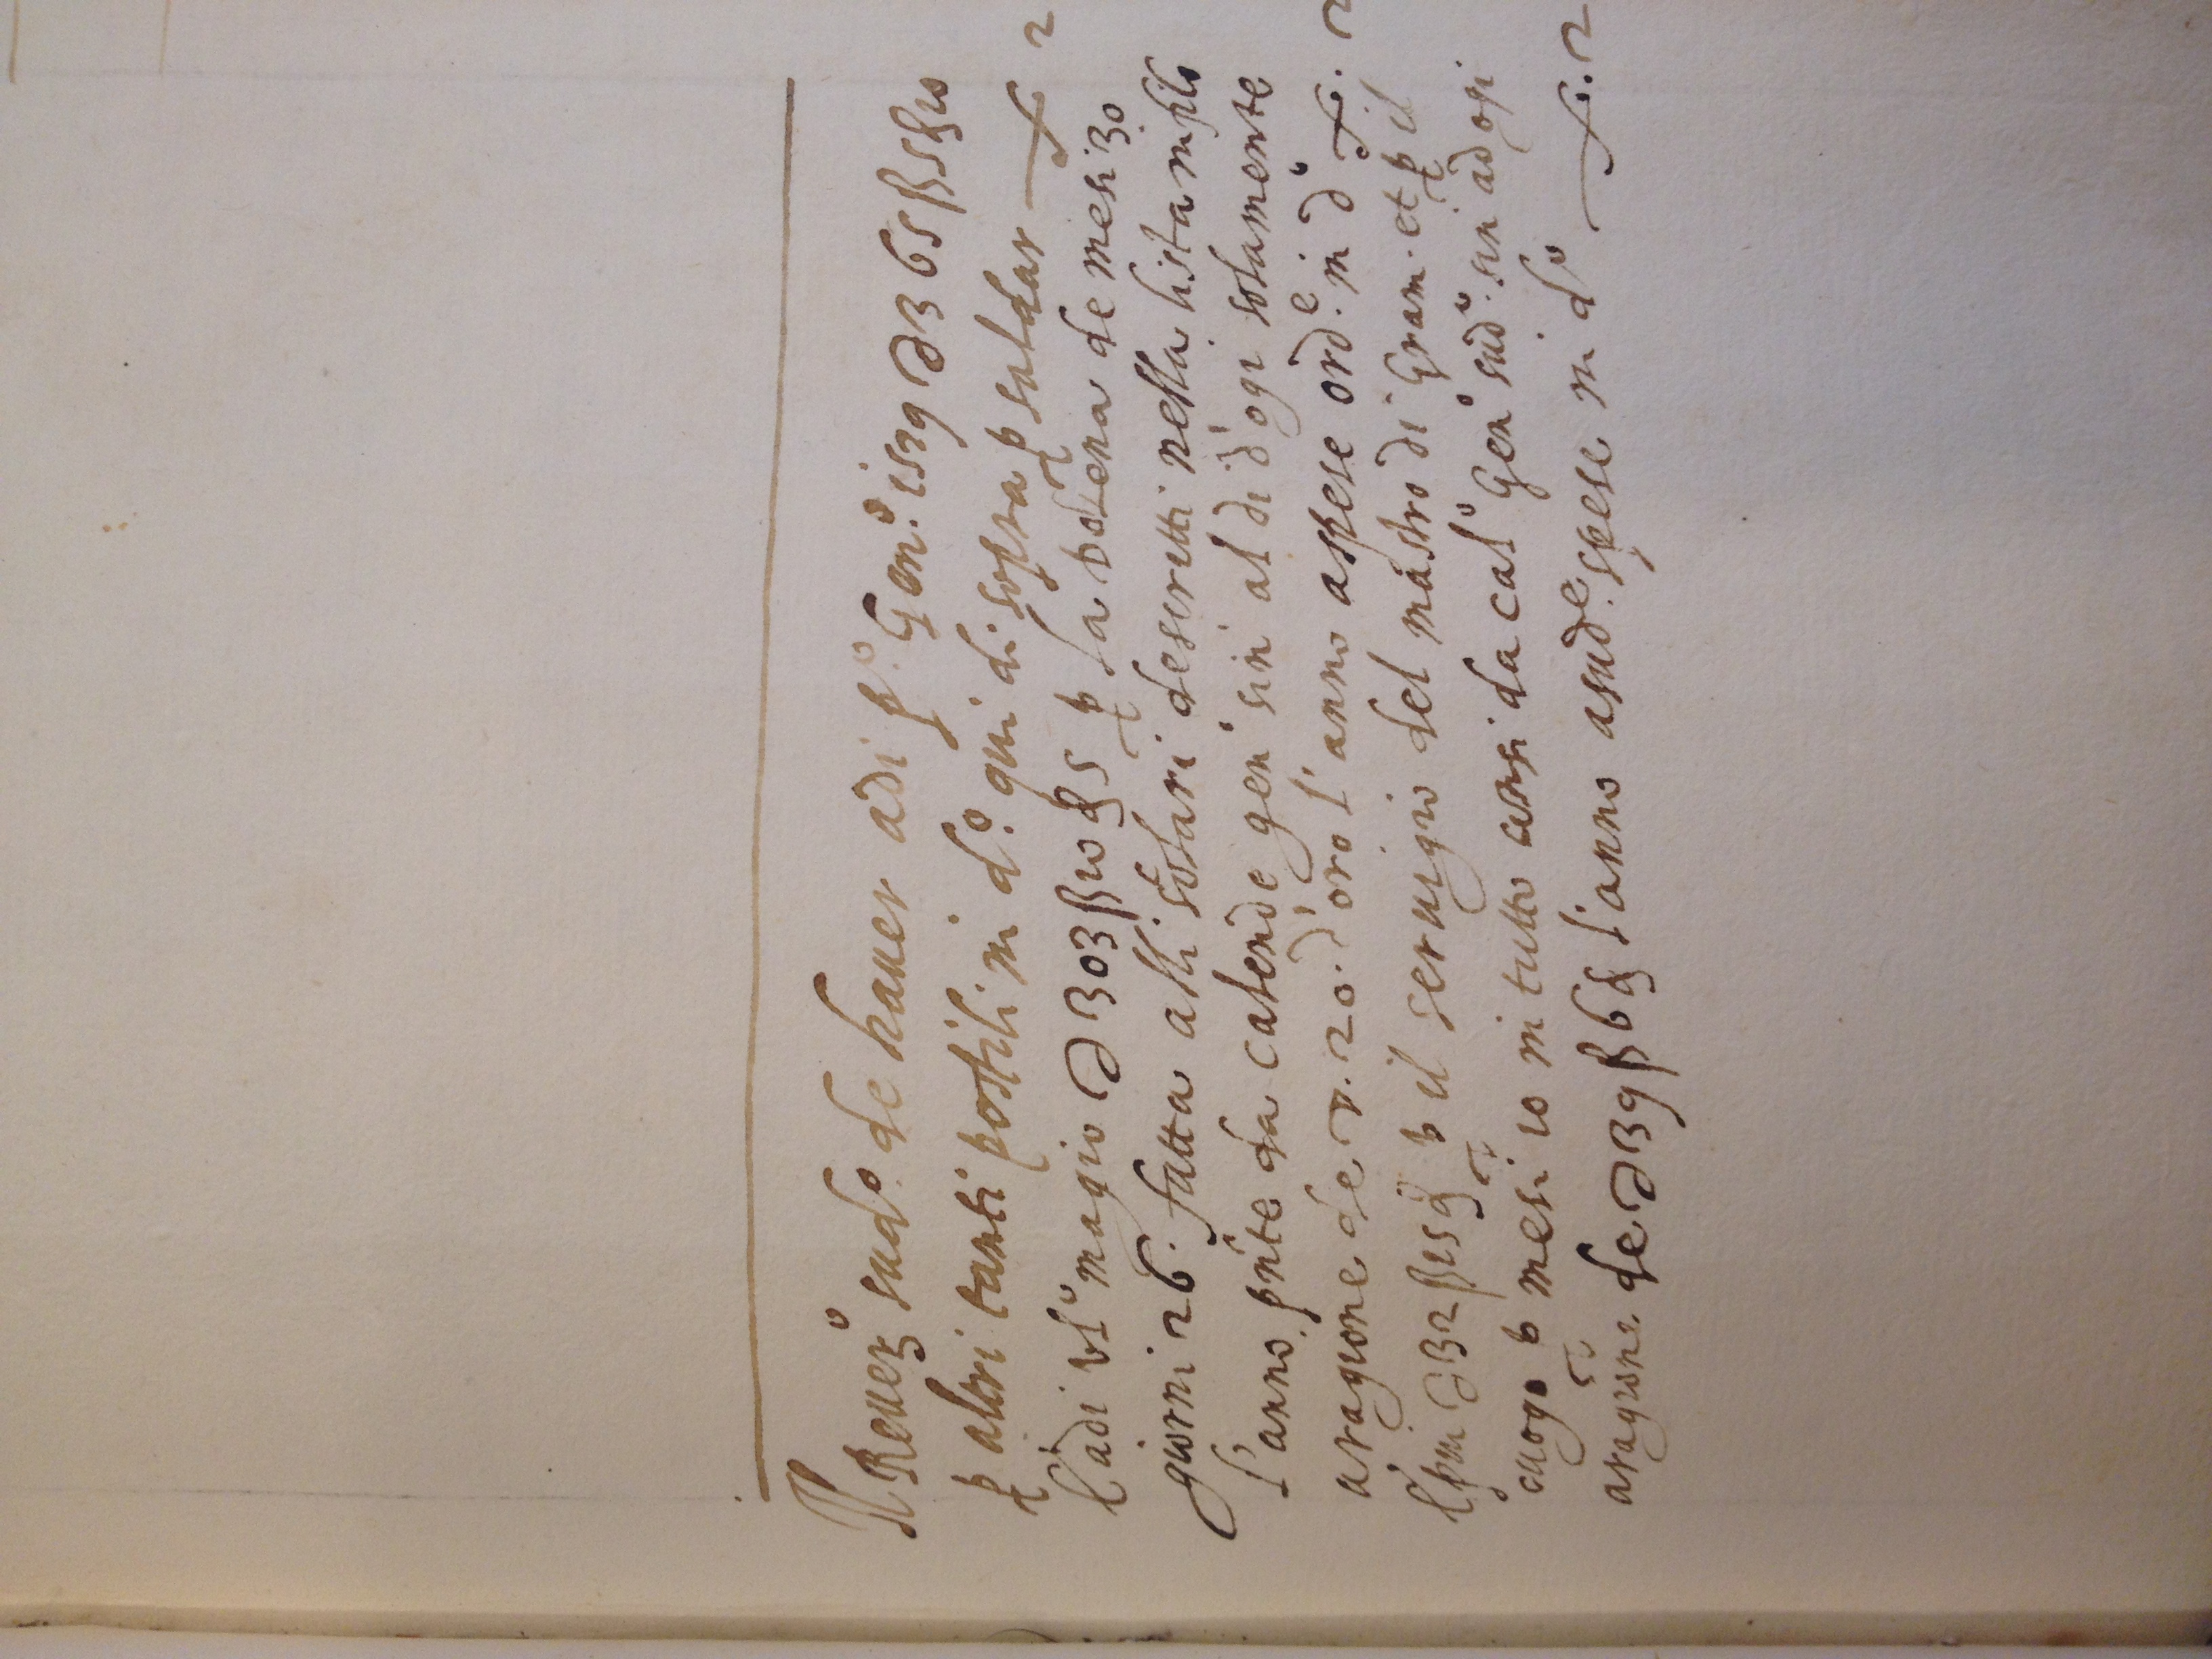 Il Reuer.o sud.o de hauer adi p.o Gen.o 1579 ∂ 365 ß 5 ₰ 10
p altri tanti postili in d.o qui di sopra p saldar — f.o 2
E adi vl.o magio ∂ 303 ß 10 ₰ 5 p la vdena de mesi 30
giorni 26. fatta alli sotari descritti nella lista in filo
l'anno. pñte da calende gen.o sin al di d'ogi solamente
a ragione de v. 20. d'oro l'anno aspese ord.e in d.o f.o. 2
E piu ∂ 32 ß 15 ₰ p il seruigio del mastro di Gram. et p il
cuogo p mesi 10 in tutto corsi da cal.o Gen.o sud.o sin ad ogi
a ragione de ∂ 39 ß 6 ₰ l'anno a sud.e spese in d.o — f.o. 2